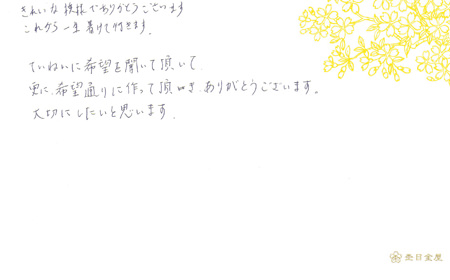 きれいな模様でありがとうございます
これから一生着けて行きます。
ていねいに希望を聞いて頂いて
更に、希望通りに作って頂き、ありがとうございます。
大切にしたいと思います。
杢目金屋